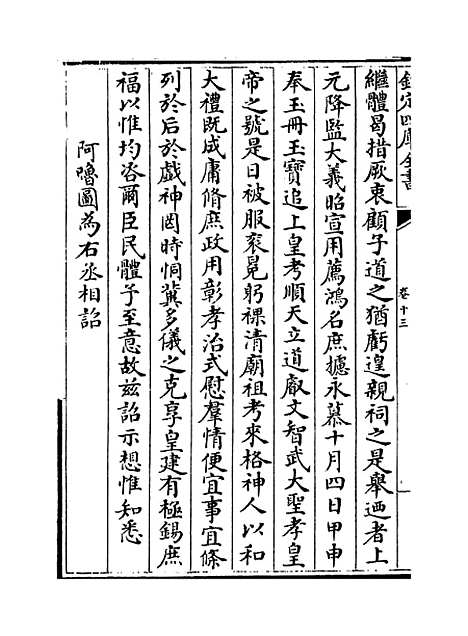 欽定四庫全書
卷十三
繼體曷措厥衷顧子道之猶虧遑親祠之是舉廼者上
元降監大義昭宣用薦鴻名庶攄永慕十月四日甲申
奉玉冊玉寶追上皇考順天立道叡文智武大聖孝皇
帝之號是日被服衮冕躬祼清廟祖考來格神人以和
大禮既成庸脩庶政用彰孝治式慰羣情便宜事宜條
列於后於戲神罔時恫冀多儀之克享皇建有極錫庶
福以惟均咨爾臣民體予至意故兹詔示想惟知悉
阿嚕圖為右丞相詔